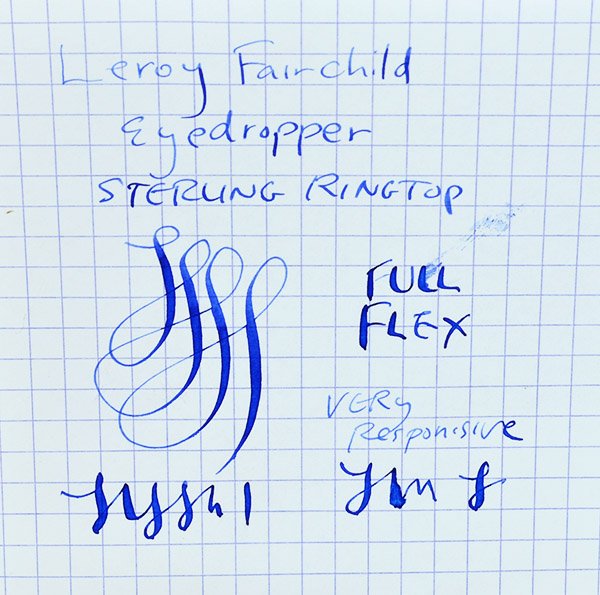 Leroy Fairchild
Eyedropper
STERLING RINGTOP
FULL
FLEX
VERY
Responsive